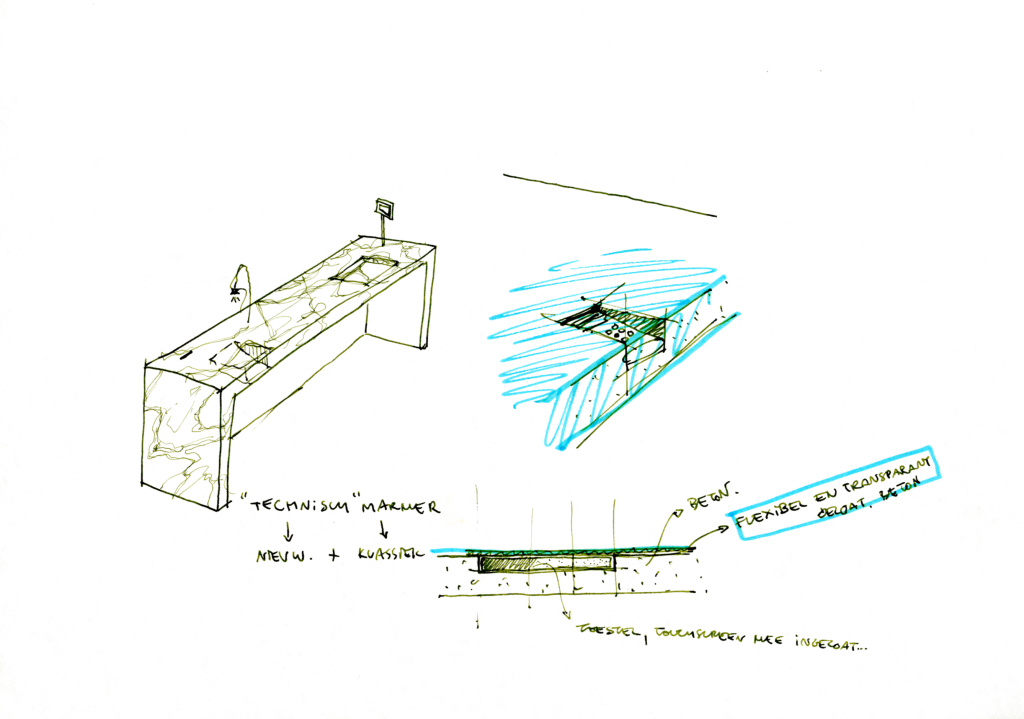 "TECHNISCH" MARMER
NIEUW. + KLASSIEK
BETON.
FLEXIBEL EN TRANSPARANT
GECOAT. BETON
TOESTEL, TOUCHSCREEN MEE INGECOAT...